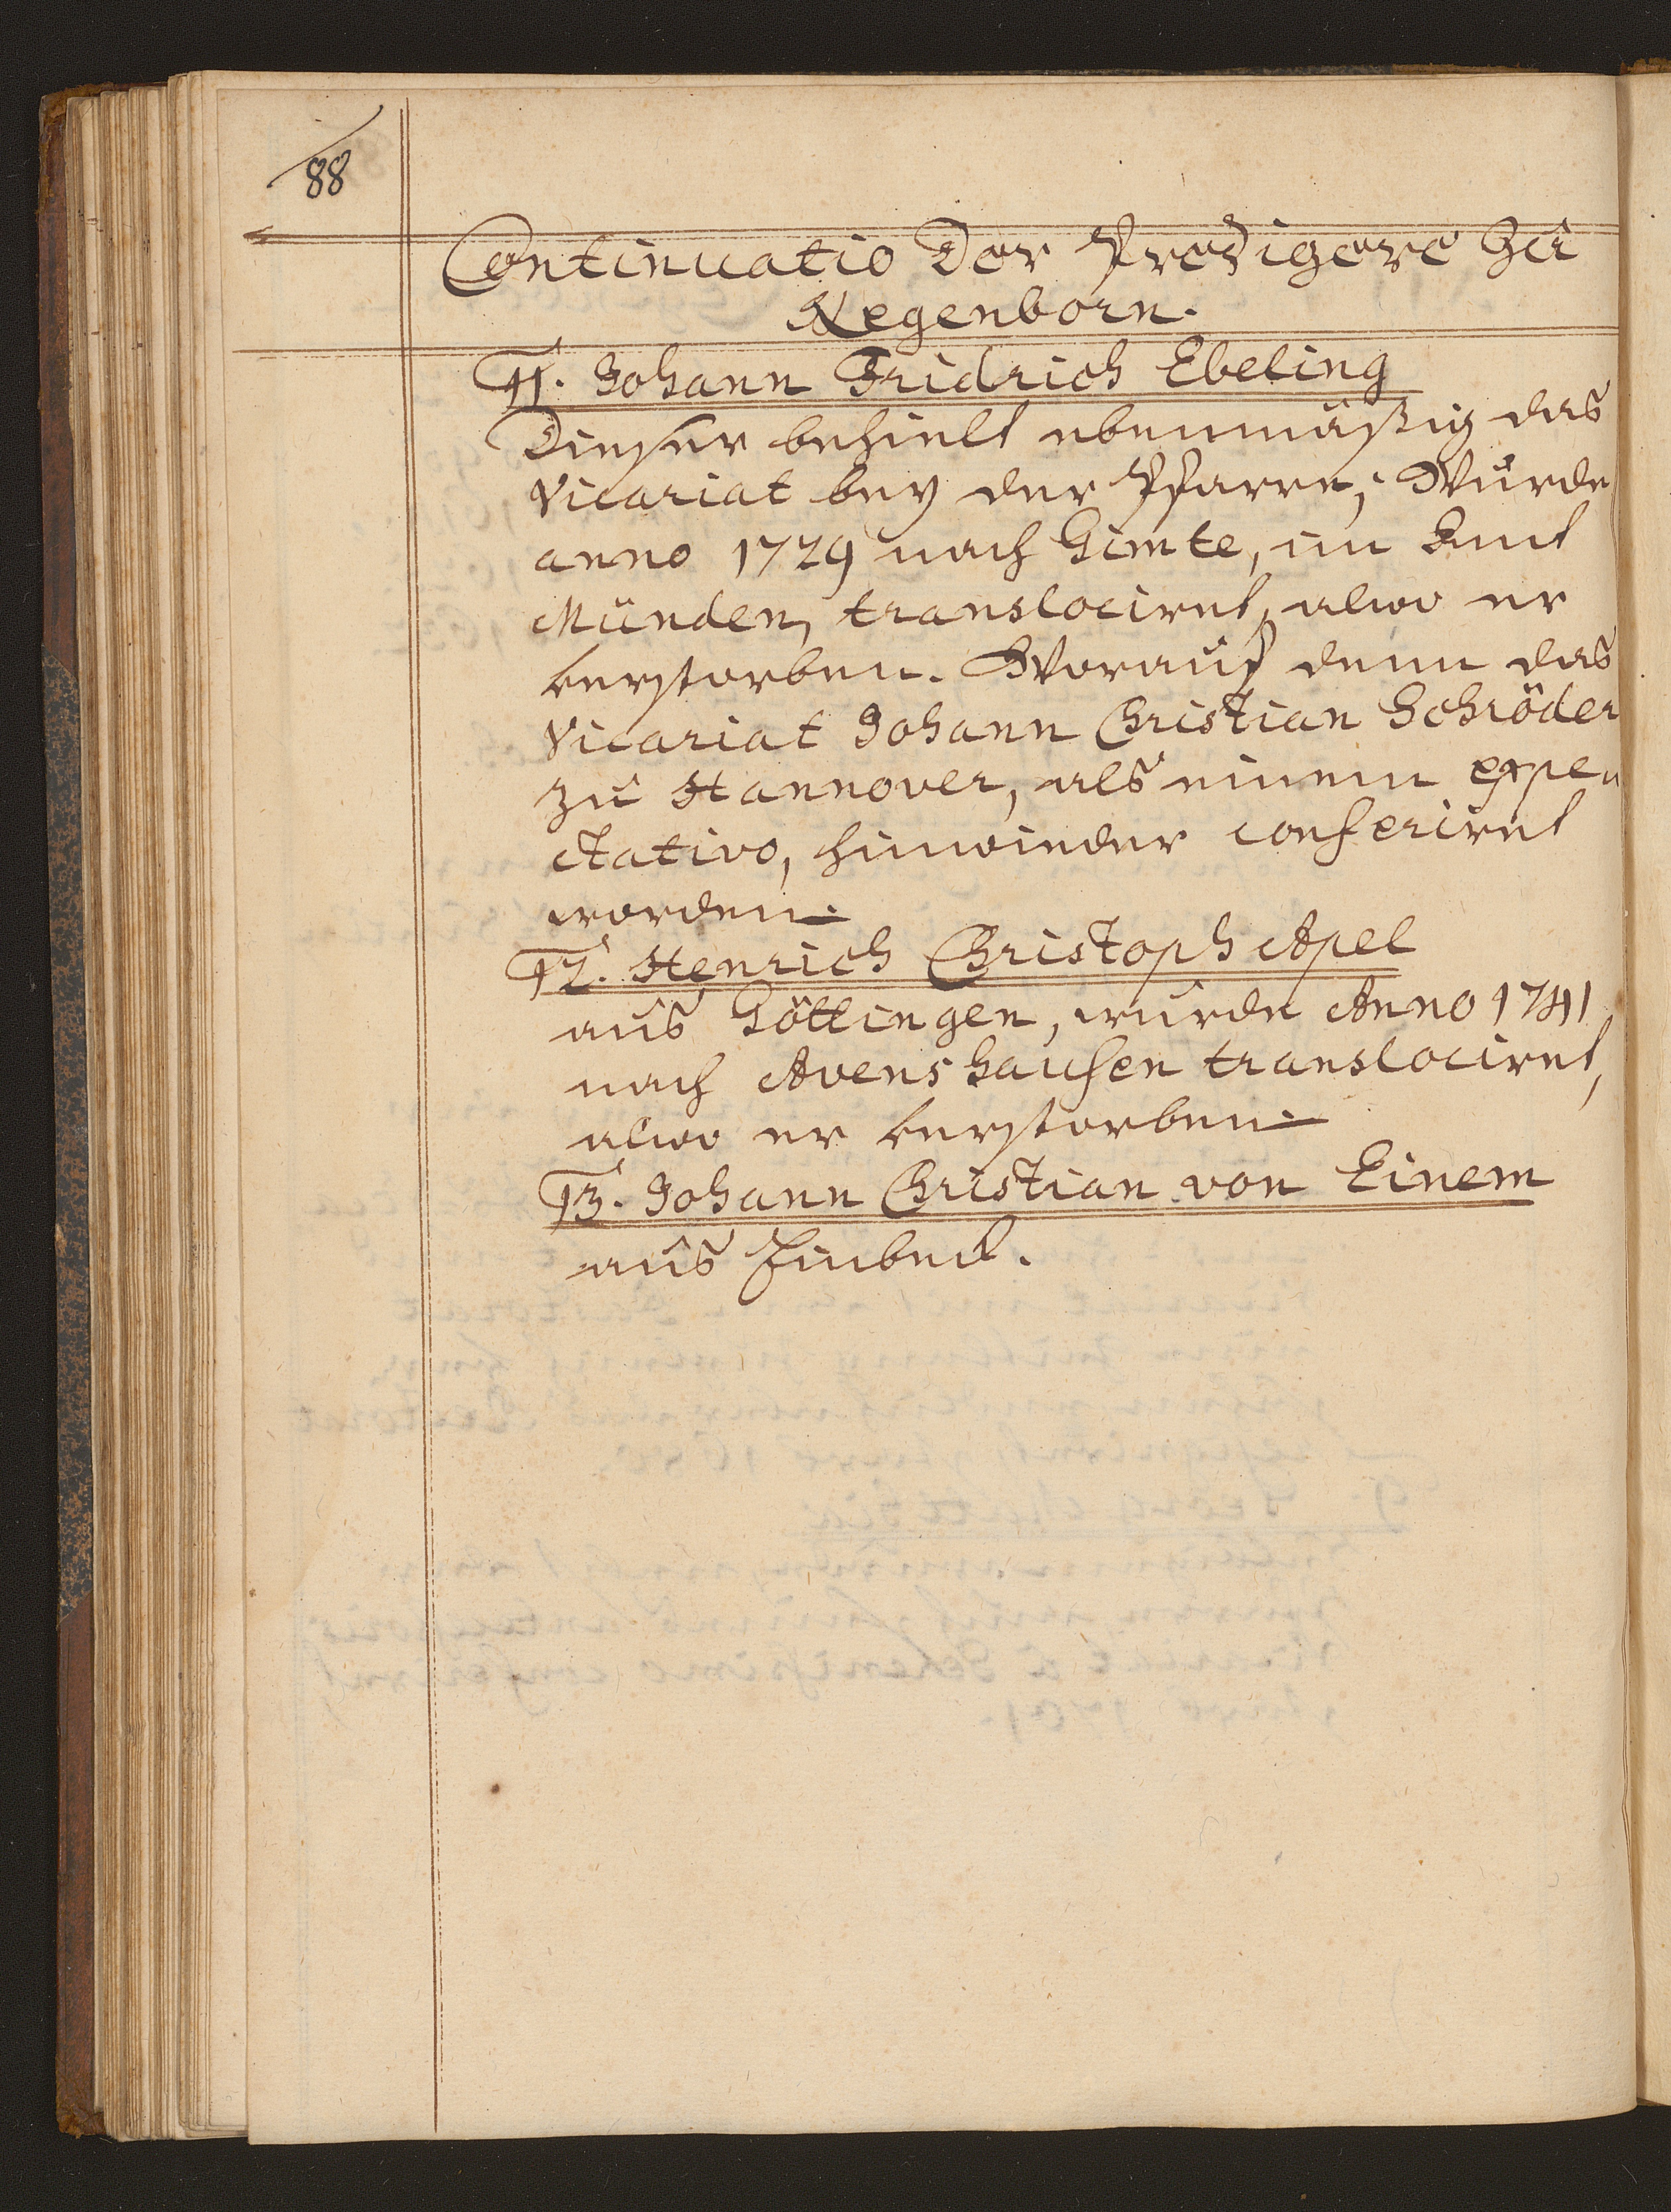 88
Continuatio Der Predigere Zu
Negenborn.
11. Johann Fridrich Ebeling
Dieser behielt ebenmäßig das
Vicariat bey der Pfarre; Wurde
anno 1729 nach Gimte, im Amt
Münden, translociret, alwo er
verstorben. Worauf denn das
Vicariat Johann Christian Schröder
zu Hannover, als einem expe-
ctativo, hinwieder conferiret
worden.
12. Henrich Christoph Apel
aus Göttingen, wurde Anno 1741
nach Avenshausen translociret,
alwo er verstorben
13. Johann Christian von Einem
aus Einbeck.